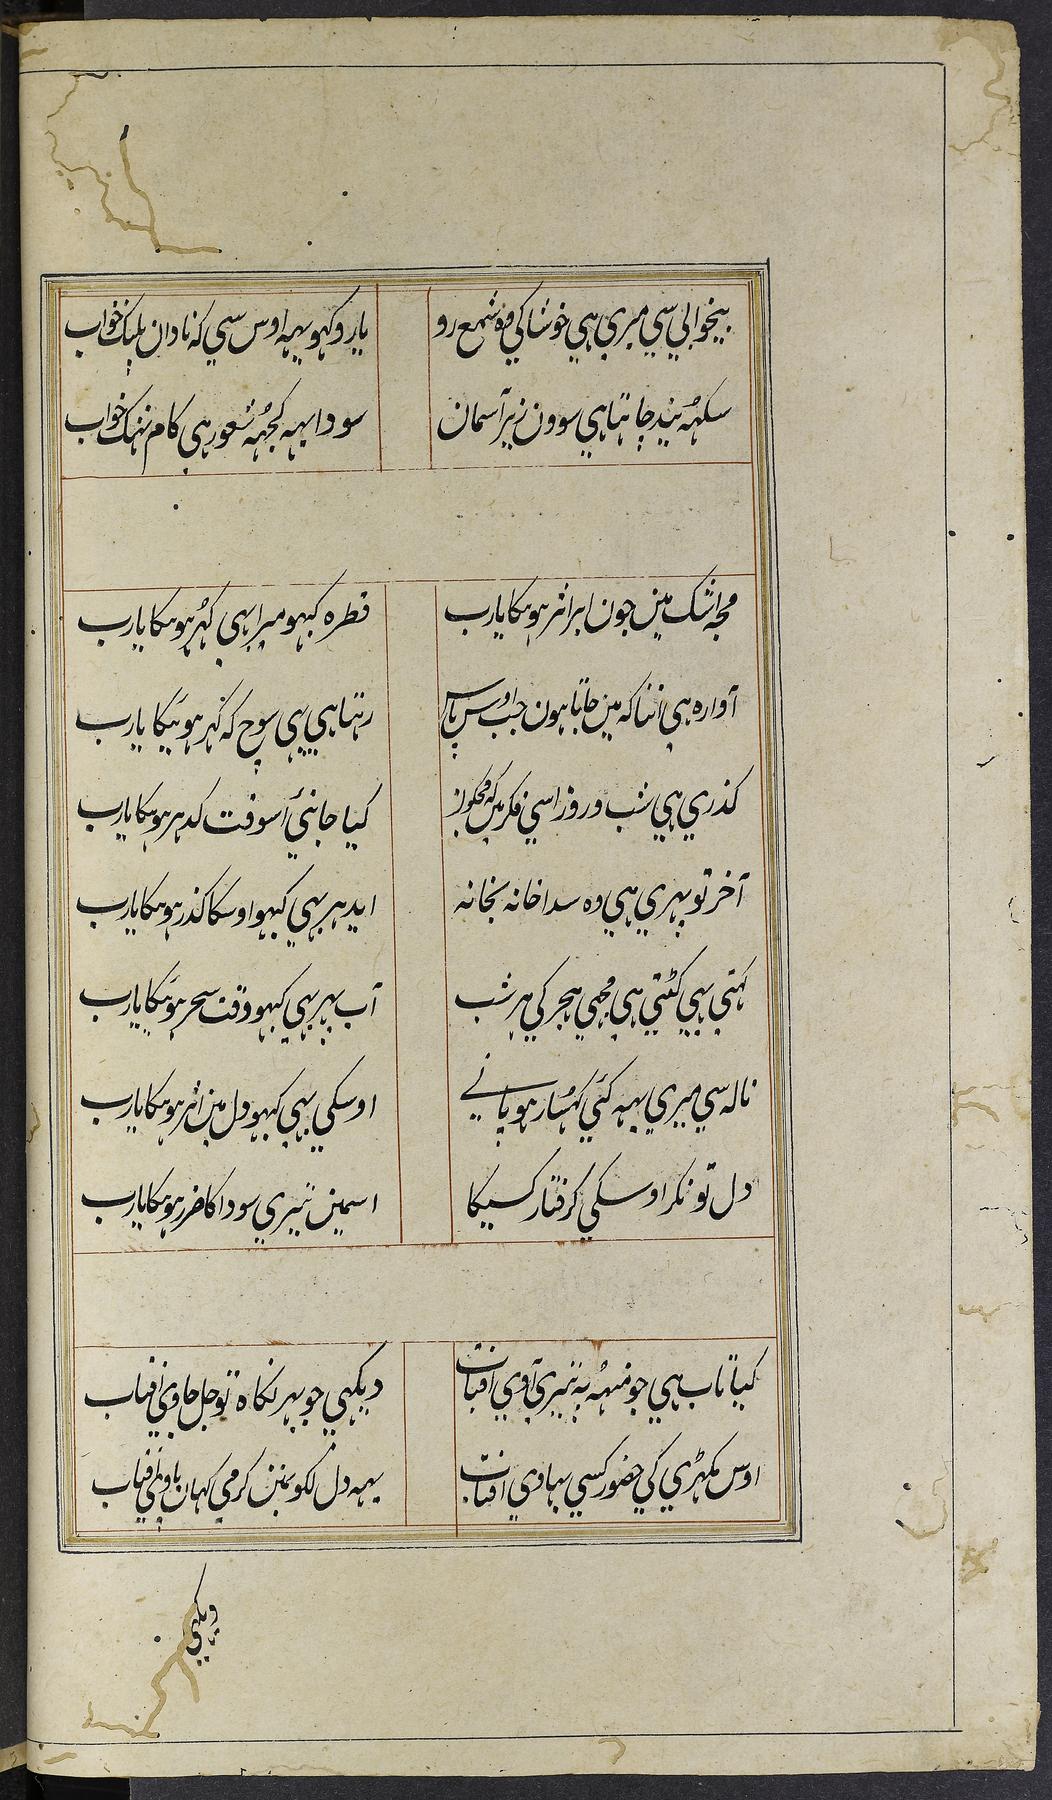 بیخوابی سي میري هي خوشاکي وه شمع رو
یارو کهو یہہ اوس سي که نادان پلنک خواب
سکہہ نیند چاہتا هي سوون زیر آسمان
سودا یہہ کچہہ شعور هي کام نہنک خواب
مجہ اشک مین جون ابر اثر ہوئیکا یارب
قطرہ کبہو میرا بہي کہر ہوئیکا یارب
آوارہ هي اتنا کہ مین جاتا ہون جب اوس پاس
رہتا هي یہي سوچ کہ کہر ہوئیکا یارب
کذري هي شب و روز اسي فکر مین کہ
کیا جانئي اسوقت کدہر ہوئیکا یارب
آخر تو پہري هي وہ سدا خانہ بخانہ
ایدہر بہي کبہو اوسکا کذر ہوئیکا یارب
کہتي یہي کٹتي هي مجہي ہجر کي ہر شب
اب پہر بہي کبہو وقت سحر ہوئیکا یارب
نالہ سي میري یہہ کئي کہسار ہو پانے
اوسکي بہي کبہو دل مین اثر ہوئیکا یارب
دل تو نکر اوسکي کرفتار کسیکا
اسمین تیري سودا کا ضرر ہوئیکا یارب
کیا تاب هي جو منہہ پہ تیري آوي آفتاب
دیکہي جو بہر نکاہ تو جل جاوي آفتاب
اوس مکہڑي کي حضور کسي بہاوي آفتاب
یہہ دل لکو نمین کرمي کہان پاوي آفتاب
دیکہي